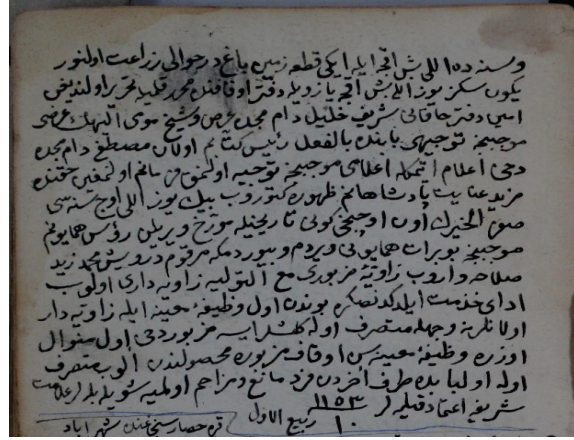 وسنده اللي بش اقچه ايله ايكى قطعه زمين باغ در حوالى زراعت اولنور
يكون سكز يوز اللي بش اقچه يازو ايله دفتر اوقافنده محرر قلميله تحرير اولنديغى
امين دفتر خاقانى شريف خليل دام مجده عرض وشيخ مومى اليهك عرضى
موجبنجه توجيهى بابنده بالفعل رئيس كتابم اولان مصطفى دام مجده
دخى اعلام اتمكله اعلامى موجبنجه توجيه اولنمق فرمانم اولمغين حقنده
مزيد عنايت پادشاهانم ظهوره كتوروب بيك يوز اللي اوچ سنه سى
صفر الخيرك اون اوچنجى كونى تاريخيله مورخ ويريلن رؤس همايونم
موجبنجه بو برات همايونى ويردم وبيوردمكه مرقوم درويش محمد زيد
صلاحه واروب زاويه مزبورى مع التوليه زاويه دارى اولوب
اداى خدمت ايلدكدنصكره بوندن اول وظيفه معينه ايله زاويه دار
اولانلر نه وجهله متصرف اوله كلمشلر ايسه مزبور دخى اول منوال
اوزره وظيفه معينه سن اوقاف مزبوره محصولندن الوب متصرف
اوله اول بابده طرف اخردن فرد مانع ومزاحم اولميه شويله بله لر علامت
شريفه اعتماد قيله لر ١١٥٣ ربيع الاول ١٠
قره حصار سنجاغنده شهراباد